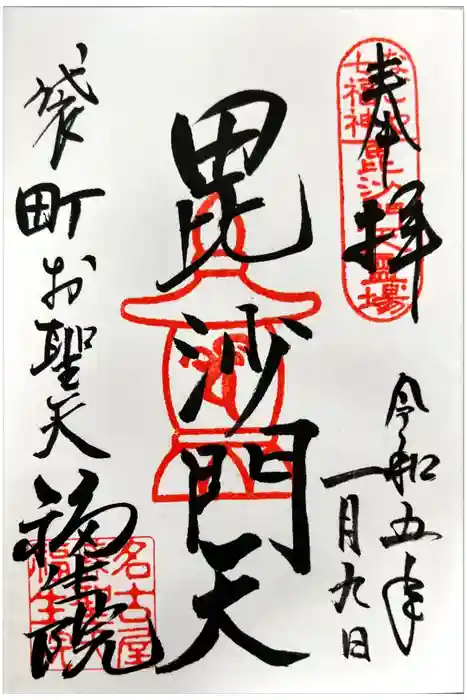 奉拝
なごや七福神
毘沙門天霊場
令和五年
一月九日
毘沙門天
袋町お聖天
福生院
名古屋
福生院